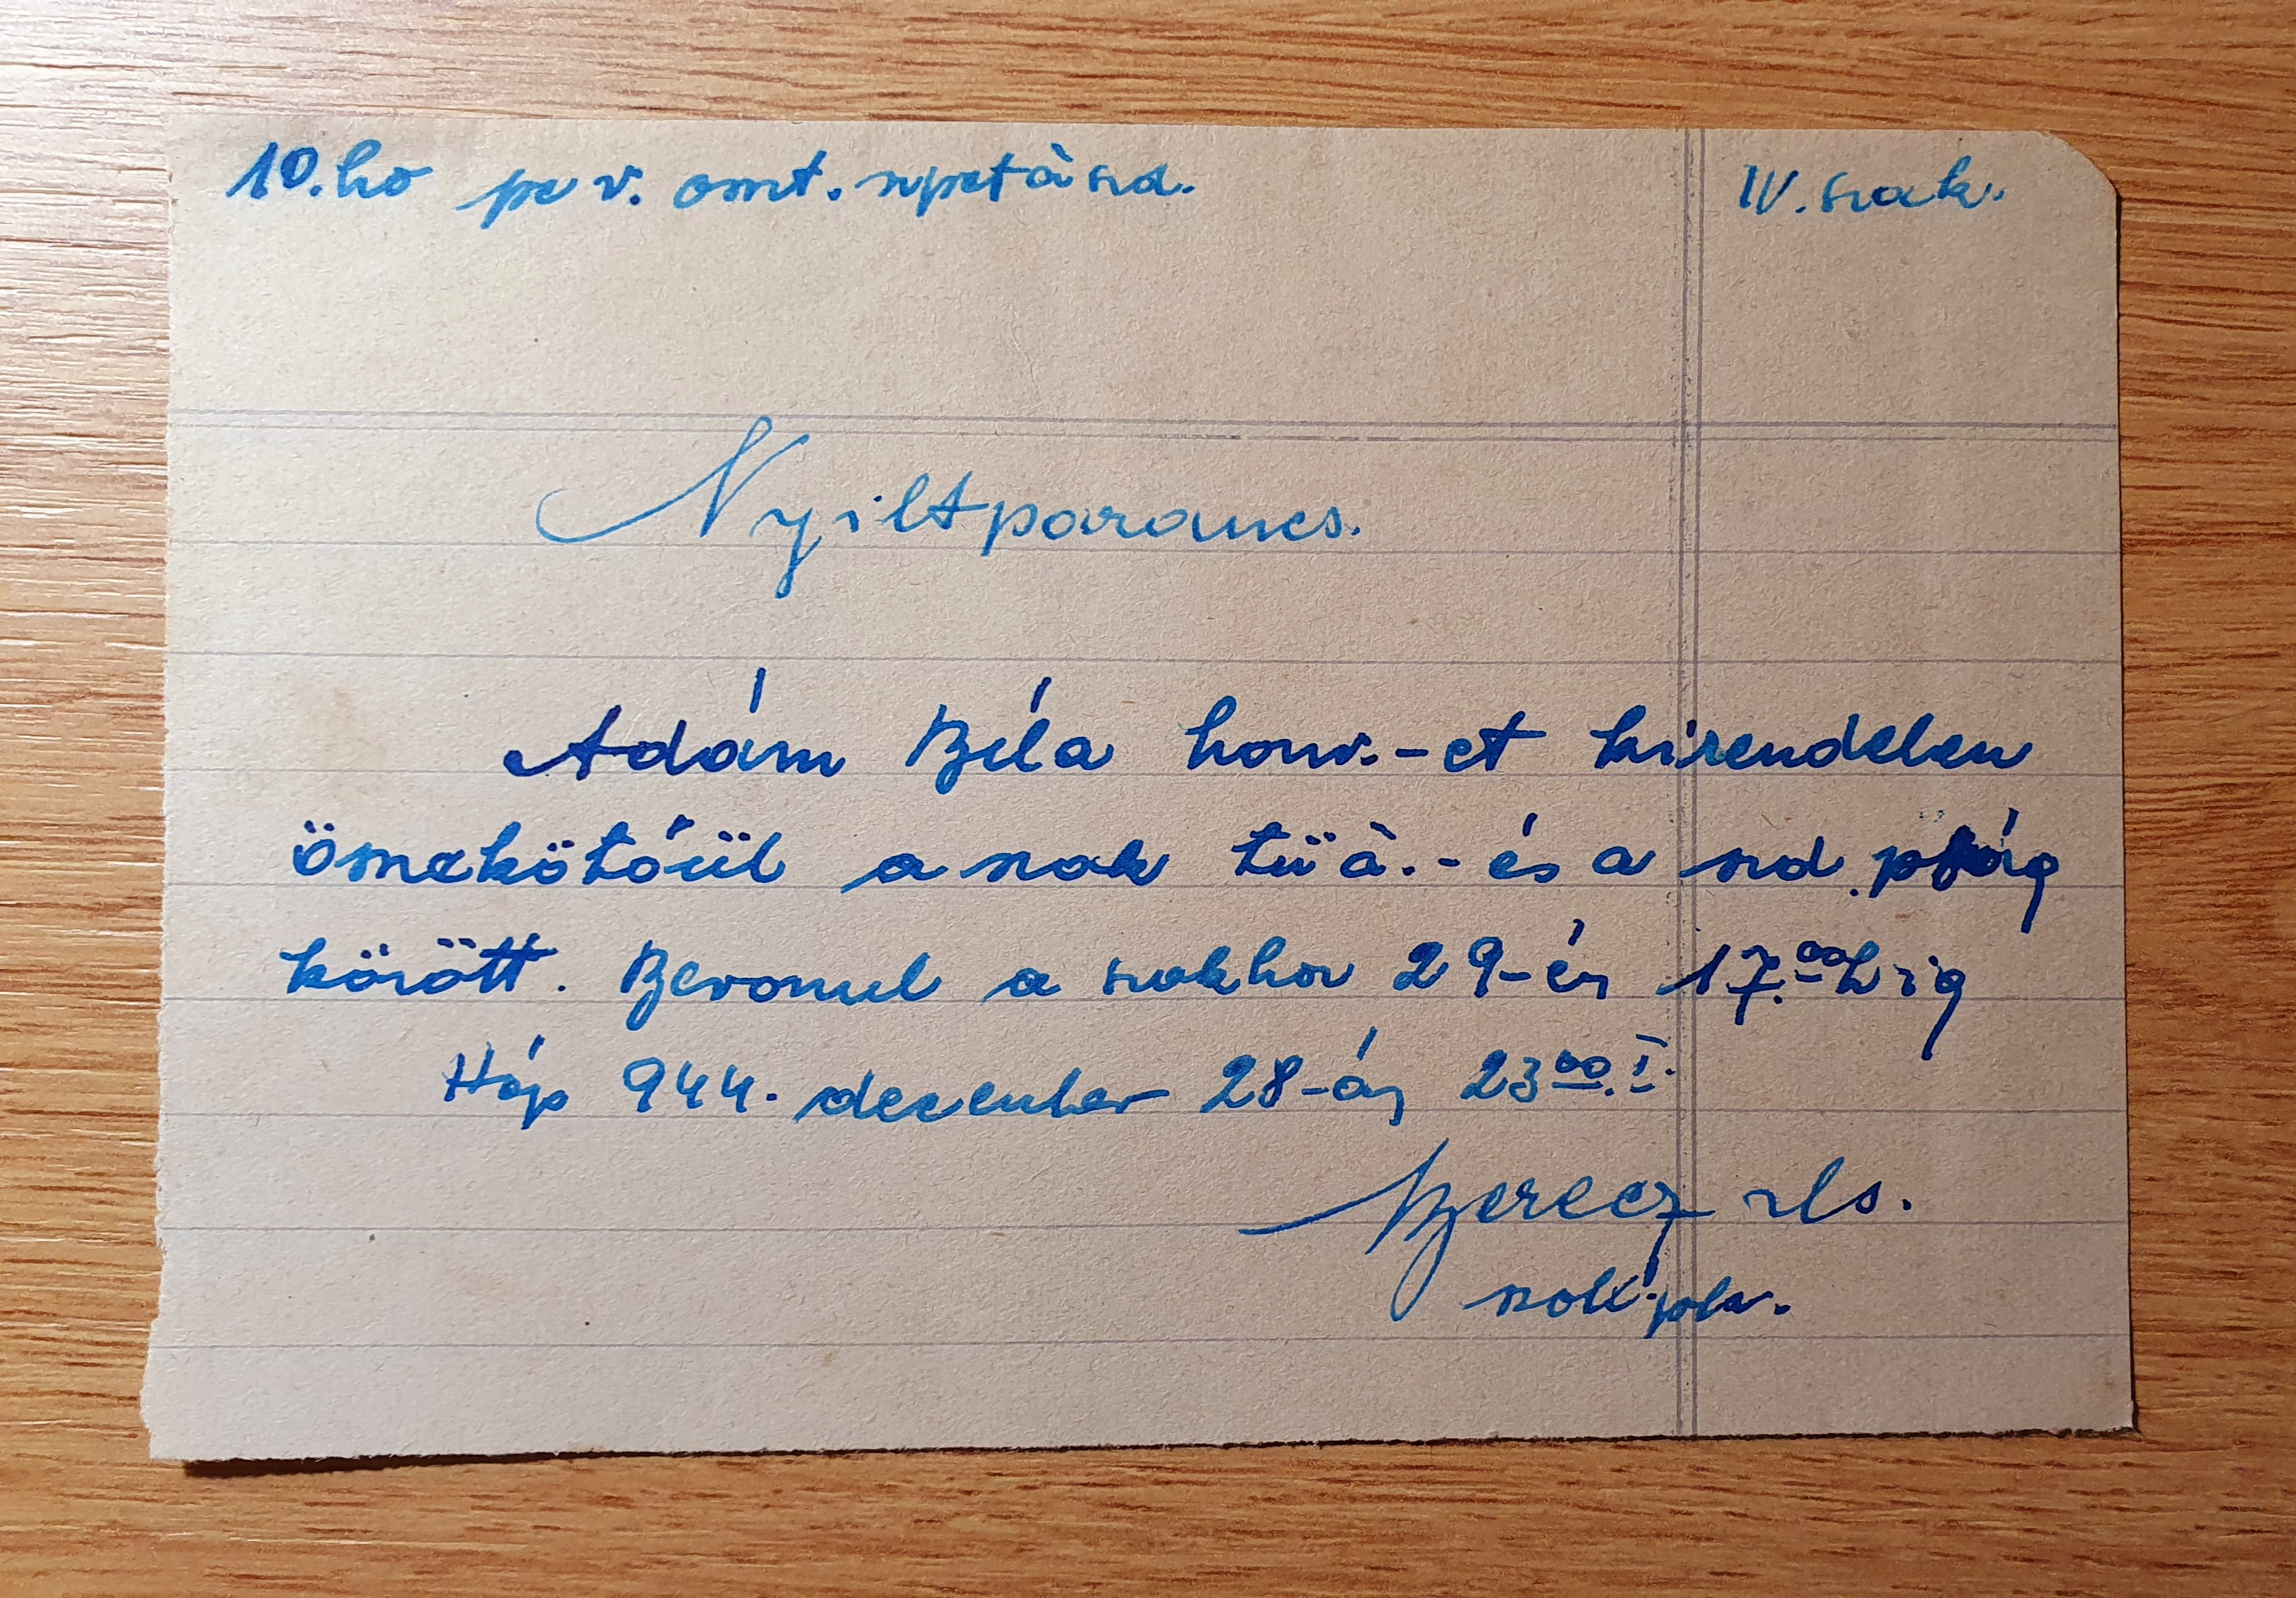 10. ho pc v. omt. szpct ászd.
IV. szak.
Nyiltparancs.
Ádám Béla honv.-et kirendelem
összekötőül a szak tü á.- és a szd
között. Bevonul a szakhoz 29-én 17.00h ig
Háp 944. december 28-án 23 00.
Berecz
szak. pk.